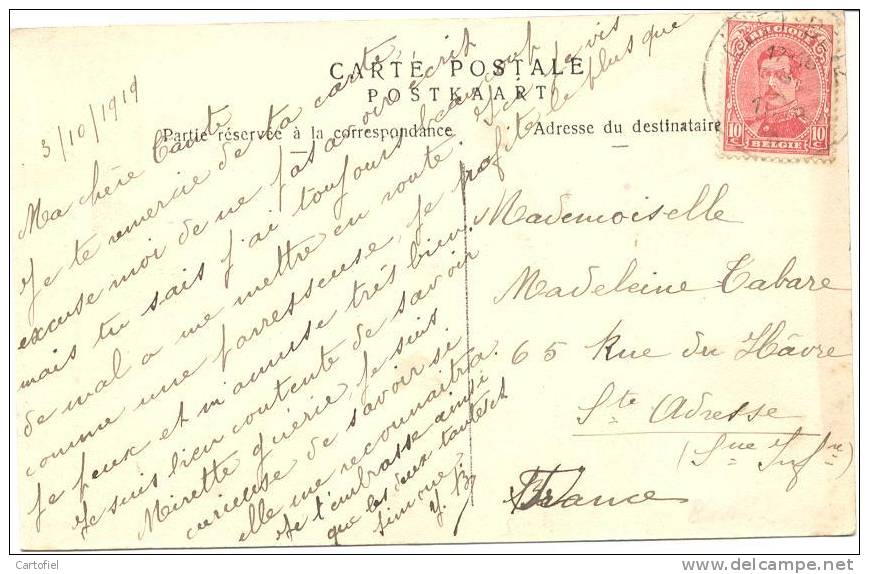 CARTE POSTALE
POSTKAART
Partie réservée à la correspondance
Adresse du destinataire
BELGIQUE
10 c 10 c
BELGIE
3/10/1919
Ma chère Tante
Je te remercie de ta carte
excuse moi de ne pas avoir écrit
mais tu sais j'ai toujours beaucoup
de mal a me mettre en route. Ici je vis
comme une parresseuse, je profite le plus que
je peux et m'amuse très bien.
Je suis bien contente de savoir
Mirette guérie, je suis
curieuse de savoir si
elle me reconnaitra.
Je t'embrasse ainsi
que les deux
Simone
Mademoiselle
Madeleine Tabare
65 Rue du Hâvre
Ste Adresse
(Sne Infre)
France
Cartofiel
delcampe.net